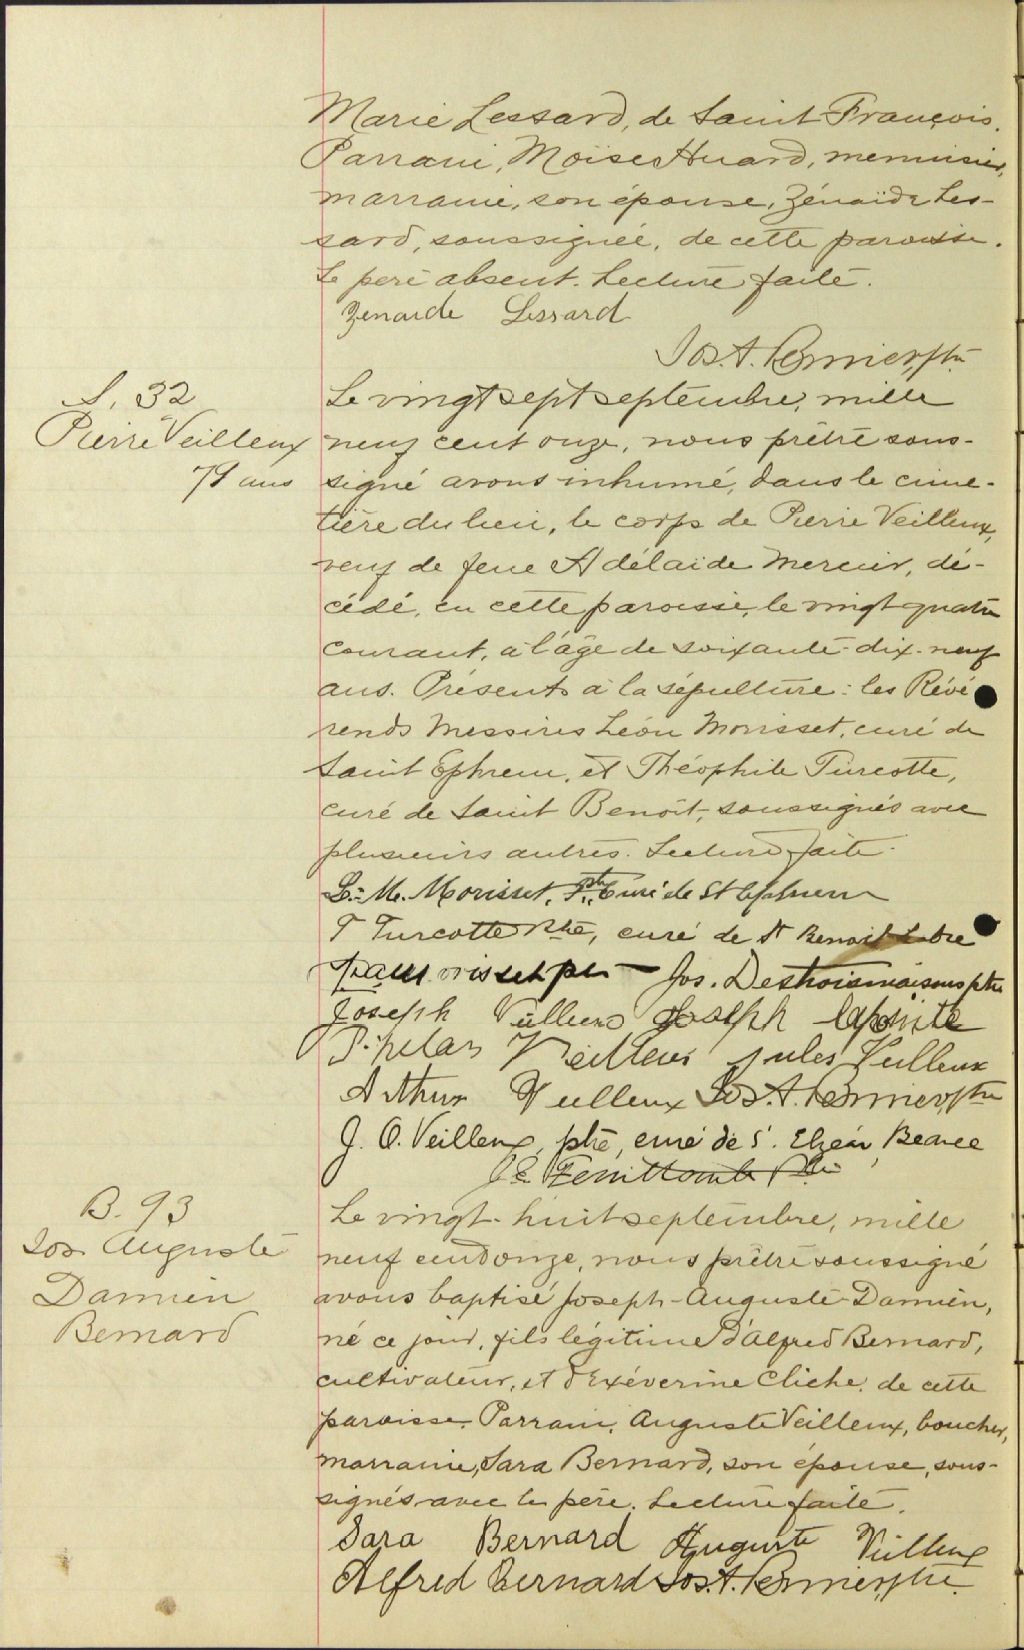 Marie Lessard, de Saint-François.
Parrain, Moïse Huard, menuisier,
marraine, son épouse, Zénaïde Les-
sard, soussignée, de cette paroisse.
Le père absent. Lecture faite.
Zenaide Lessard
Jos. A. Bernier, ptre
S. 32
Pierre Veilleux
79 ans
Le vingt sept septembre, mille
neuf cent onze, nous prêtre sous-
signé avons inhumé, dans le cime-
tière du lieu, le corps de Pierre Veilleux,
veuf de feue Adélaïde Mercier, dé-
cédé, en cette paroisse, le vingt-quatre
courant, à l'âge de soixante-dix-neuf
ans. Présents à la sépulture: les Révé
rends Messires Léon Morisset, curé de
Saint Ephrem, et Théophile Turcotte,
curé de Saint Benoît, soussignés avec
plusieurs autres. Lecture faite.
L.-M. Morisset, Ptre Curé de St Ephrem
T Turcotte Ptre, curé de St Benoit Labre
Jos. Destroismaisons ptre
Joseph Veilleux Joseph Lapointe
Veilleux Jules Veilleux
Arthur Veilleux Jos. A. Bernier, ptre
J. O. Veilleux, ptre, curé de S. Elzéar, Beauce
B. 93
Jos. Auguste
Damien
Bernard
Le vingt-huit septembre, mille
neuf cent onze, nous prêtre soussigné
avons baptisé Joseph-Auguste-Damien,
né ce jour, fils légitime d'Alfred Bernard,
cultivateur, et d'Exéverine Cliche, de cette
paroisse. Parrain, Auguste Veilleux, boucher,
marraine, Sara Bernard, son épouse, sous-
signés avec le père. Lecture faite.
Sara Bernard Auguste Veilleux
Alfred Bernard Jos. A. Bernier, ptre